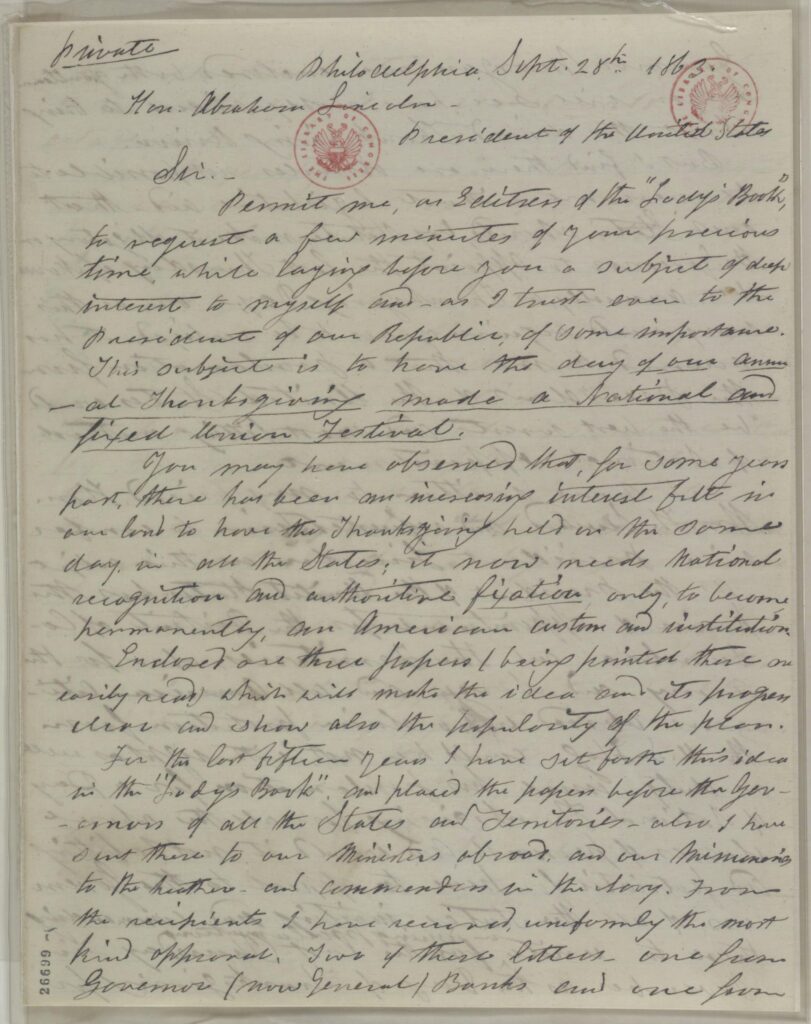 Private
Philadelphia, Sept. 28th 1863.
Hon. Abraham Lincoln -
President of the United States
THE LIBRARY OF CONGRESS
THE LIBRARY OF CONGRESS
Sir.-
Permit me, as Editress of the "Lady's Book",
to request a few minutes of your precious
time, while laying before you a subject of deep
interest to myself and - as I trust - even to the
President of our Republic, of some importance.
This subject is to have the day of our annu
-al Thanksgiving made a National and
fixed Union Festival.
You may have observed that, for some years
past, there has been an increasing interest felt in
our land to have the Thanksgiving held on the same
day, in all the States; it now needs National
recognition and authoritive fixation, only, to become
permanently, an American custom and institution.
Enclosed are three papers (being printed these are
easily read) which will make the idea and its progress
clear and show also the popularity of the plan.
For the last fifteen years I have set forth this idea
in the "Lady's Book", and placed the papers before the Gov-
-ernors of all the States and Territories - also I have
sent these to our Ministers abroad, and our Missionaries
to the heathen - and commanders in the Navy. From
the recipients I have received, uniformly the most
kind approval. Two of these letters, one from
Governor (now General) Banks and one from
26699